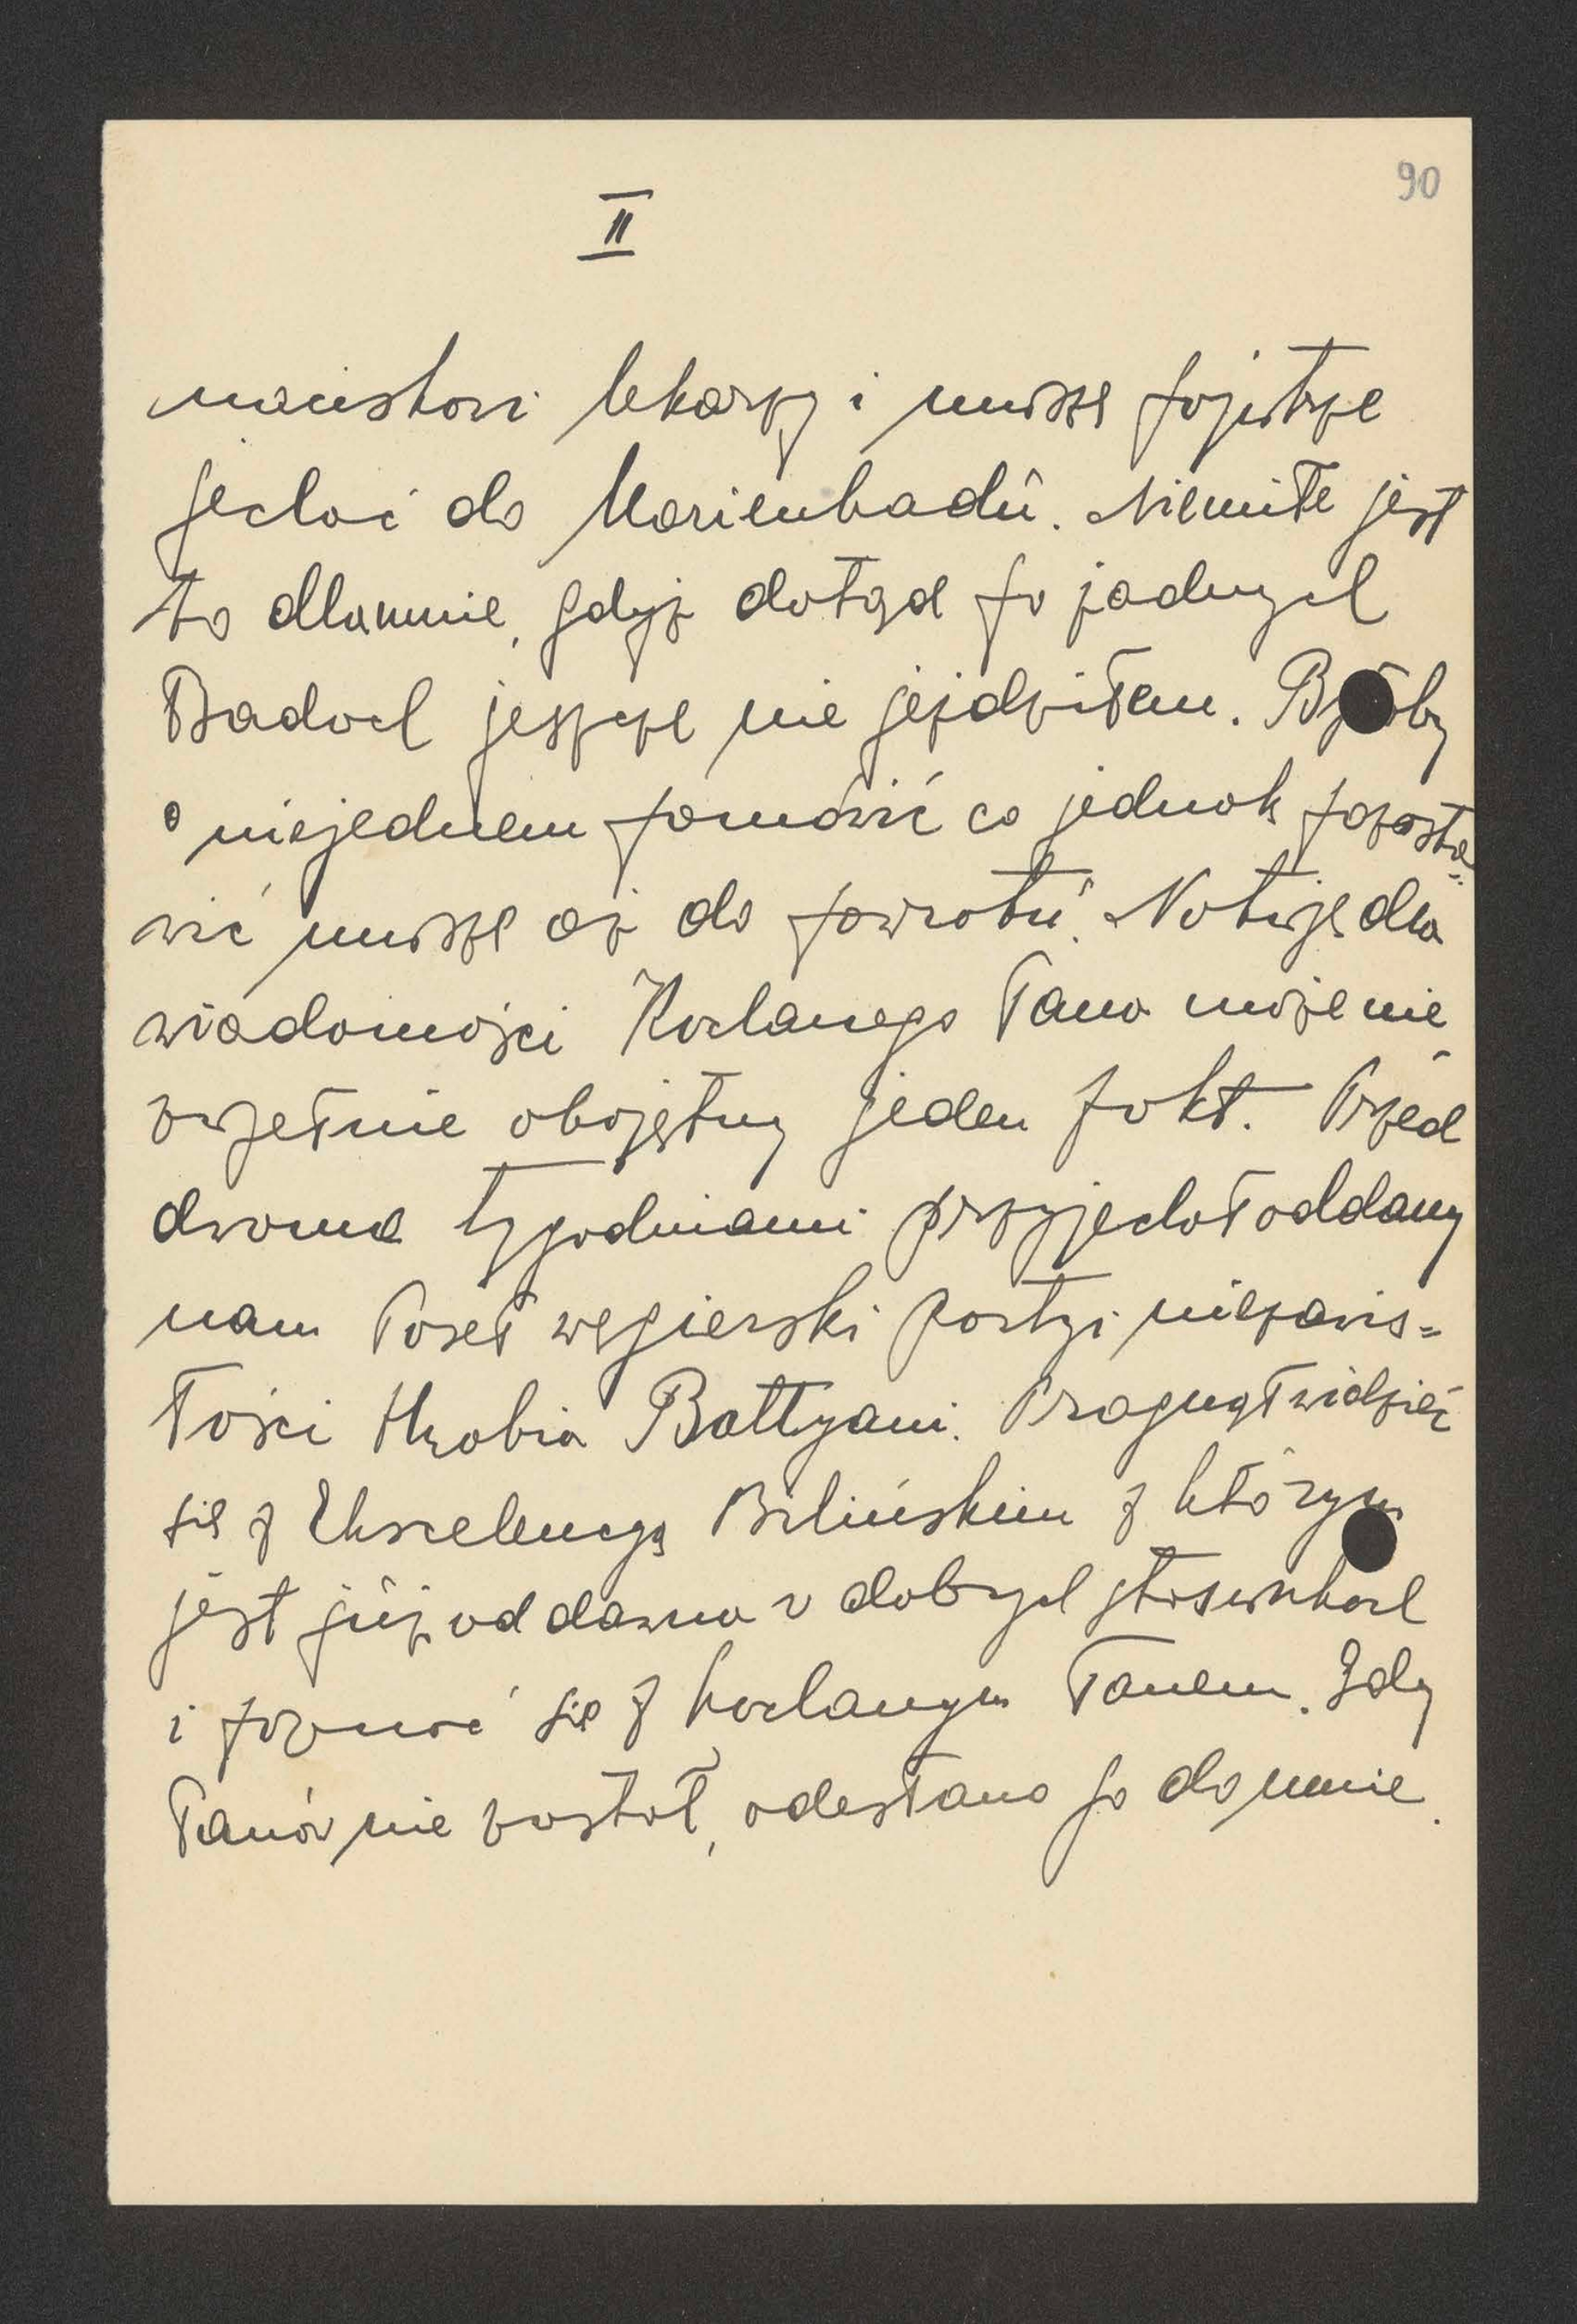 90
II
naciskowi lekarzy i muszę pojutrze
jechać do Marienbadu. Niemiłe jest
to dla mnie, gdyż dotąd po żadnych
Badach jeszcze nie jeździłem. Byłoby
o niejednem pomówić co jednak pozosta=
wić muszę aż do powrotu. Notuję dla
wiadomości Kochanego Pana może nie
zupełnie obojętny jeden fakt. Przed
dwoma tygodniami przyjechał oddany
nam Poseł węgierski partyi niezawis=
łości Hrabia Battyani. Pragnął widzieć
się z Ekscelencyą Bilińskim z którym
jest już od dawna w dobrych stosunkach
i poznać się z kochanym Panem. Gdy
Panów nie zastał, odesłano go do mnie.